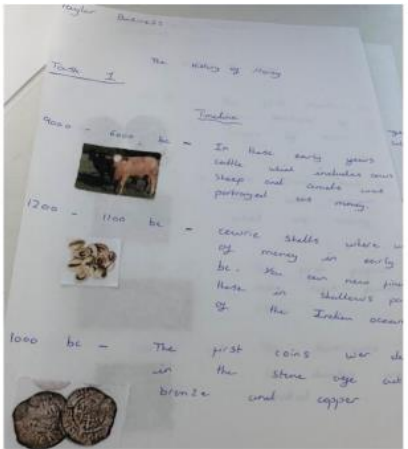 Taylor Business
The History of Money
Task 1
Timeline
9000 - 6000 bc - In these early years
cattle what includes cows
sheep and camels was
portrayed as money.
1200 - 1100 bc - cowrie shells where
of money in early
bc. You can now find
these in shallows
of the Indian ocean
1000 bc - The first coins wer
in the stone age out
bronze and copper